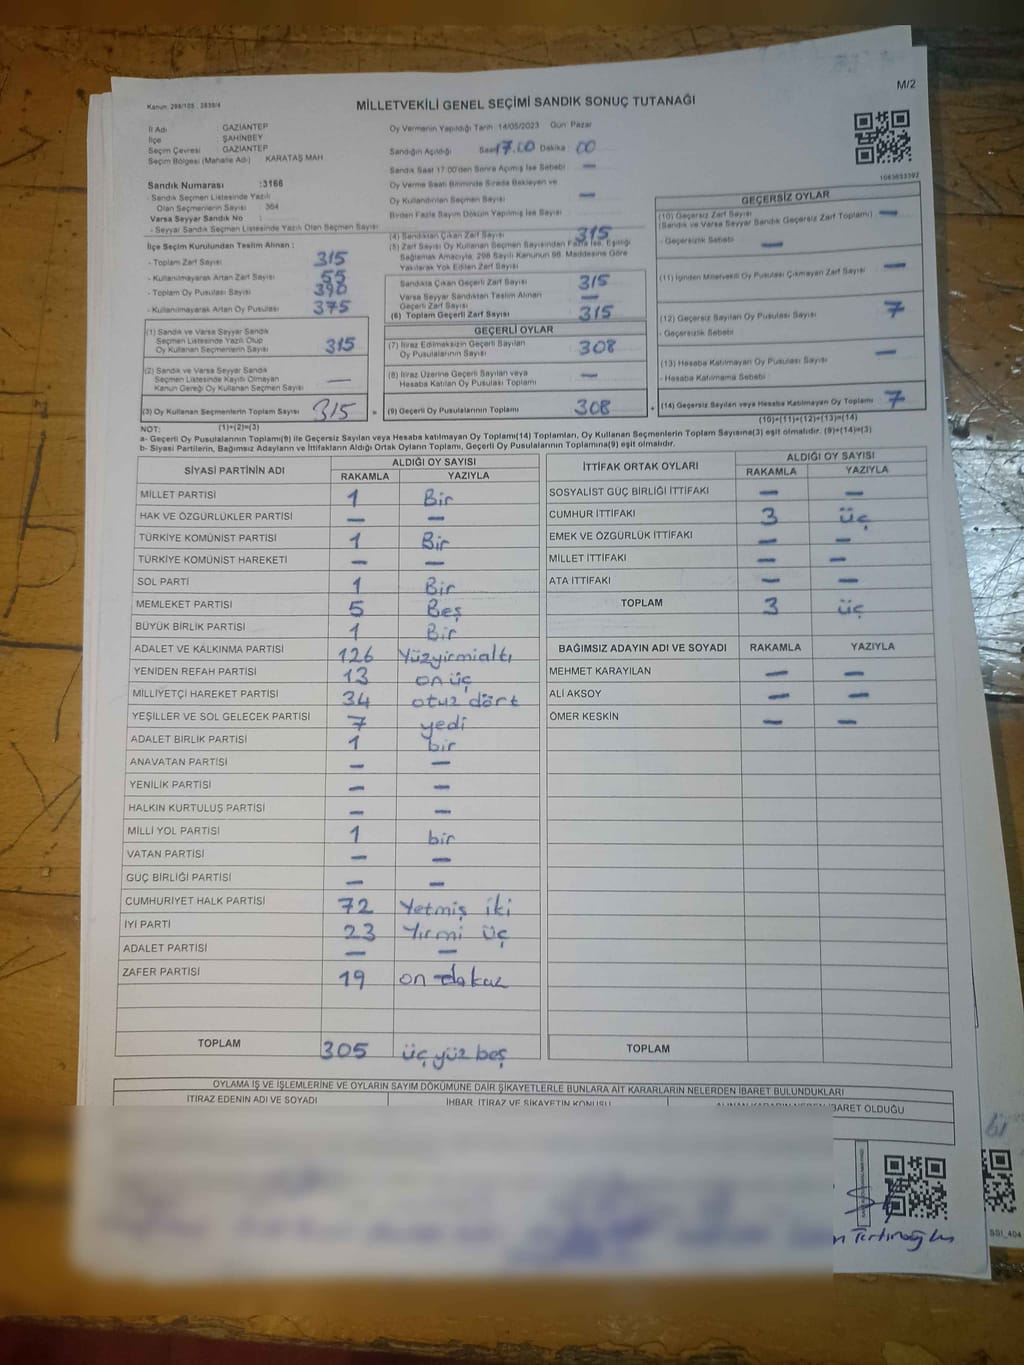 Kanun: 298/105 ; 2839/4
M/2
MİLLETVEKİLİ GENEL SEÇİMİ SANDIK SONUÇ TUTANAĞI
İl Adı GAZİANTEP
İlçe ŞAHİNBEY
Seçim Çevresi GAZİANTEP
Seçim Bölgesi (Mahalle Adı) KARATAŞ MAH
Oy Vermenin Yapıldığı Tarih :14/05/2023 Gün: Pazar
Sandığın Açıldığı Saat 17.00 Dakika : 00
Sandık Saat 17:00'den Sonra Açılmış İse Sebebi —
Oy Verme Saati Bitiminde Sırada Bekleyen ve
Oy Kullandırılan Seçmen Sayısı —
Birden Fazla Sayım Döküm Yapılmış İse Sayısı
1063633392
Sandık Numarası :3166
- Sandık Seçmen Listesinde Yazılı
Olan Seçmenlerin Sayısı : 364
Varsa Seyyar Sandık No :
- Seyyar Sandık Seçmen Listesinde Yazılı Olan Seçmen Sayısı
İlçe Seçim Kurulundan Teslim Alınan :
- Toplam Zarf Sayısı
- Kullanılmayarak Artan Zarf Sayısı 55
- Toplam Oy Pusulası Sayısı 390
- Kullanılmayarak Artan Oy Pusulası 375
(1) Sandık ve Varsa Seyyar Sandık
Seçmen Listesinde Yazılı Olup
Oy Kullanan Seçmenlerin Sayısı 315
(2) Sandık ve Varsa Seyyar Sandık
Seçmen Listesinde Kayıtlı Olmayan
Kanun Gereği Oy Kullanan Seçmen Sayısı —
(3) Oy Kullanan Seçmenlerin Toplam Sayısı 315 =
(4) Sandıktan Çıkan Zarf Sayısı 315
(5) Zarf Sayısı Oy Kullanan Seçmen Sayısından Fazla İse, Eşitliği
Sağlamak Amacıyla, 298 Sayılı Kanunun 98. Maddesine Göre
Yakılarak Yok Edilen Zarf Sayısı
Sandıkta Çıkan Geçerli Zarf Sayısı 315
Varsa Seyyar Sandıktan Teslim Alınan
Geçerli Zarf Sayısı —
(6) Toplam Geçerli Zarf Sayısı 315
GEÇERLİ OYLAR
(7) İtiraz Edilmeksizin Geçerli Sayılan
Oy Pusulalarının Sayısı 308
(8) İtiraz Üzerine Geçerli Sayılan veya
Hesaba Katılan Oy Pusulası Toplamı —
(9) Geçerli Oy Pusulalarının Toplamı 308 +
GEÇERSİZ OYLAR
(10) Geçersiz Zarf Sayısı —
(Sandık ve Varsa Seyyar Sandık Geçersiz Zarf Toplamı)
- Geçersizlik Sebebi —
(11) İçinden Milletvekili Oy Pusulası Çıkmayan Zarf Sayısı —
(12) Geçersiz Sayılan Oy Pusulası Sayısı 7
- Geçersizlik Sebebi:
(13) Hesaba Katılmayan Oy Pusulası Sayısı —
- Hesaba Katılmama Sebebi :
(14) Geçersiz Sayılan veya Hesaba Katılmayan Oy Toplamı 7
NOT: (1)+(2)=(3)
(10)+(11)+(12)+(13)=(14)
a- Geçerli Oy Pusulalarının Toplamı(9) ile Geçersiz Sayılan veya Hesaba katılmayan Oy Toplamı(14) Toplamları, Oy Kullanan Seçmenlerin Toplam Sayısına(3) eşit olmalıdır. (9)+(14)=(3)
b- Siyasi Partilerin, Bağımsız Adayların ve İttifakların Aldığı Ortak Oyların Toplamı, Geçerli Oy Pusulalarının Toplamına(9) eşit olmalıdır.
SİYASİ PARTİNİN ADI ALDIĞI OY SAYISI
RAKAMLA YAZIYLA
MİLLET PARTİSİ 1 Bir
HAK VE ÖZGÜRLÜKLER PARTİSİ — —
TÜRKİYE KOMÜNİST PARTİSİ 1 Bir
TÜRKİYE KOMÜNİST HAREKETİ — —
SOL PARTİ 1 Bir
MEMLEKET PARTİSİ 5 Beş
BÜYÜK BİRLİK PARTİSİ 1 Bir
ADALET VE KALKINMA PARTİSİ 126 Yüzyirmialtı
YENİDEN REFAH PARTİSİ 13 on üç
MİLLİYETÇİ HAREKET PARTİSİ 34 otuz dört
YEŞİLLER VE SOL GELECEK PARTİSİ 7 yedi
ADALET BİRLİK PARTİSİ 1 bir
ANAVATAN PARTİSİ — —
YENİLİK PARTİSİ — —
HALKIN KURTULUŞ PARTİSİ — —
MİLLİ YOL PARTİSİ 1 bir
VATAN PARTİSİ — —
GÜÇ BİRLİĞİ PARTİSİ — —
CUMHURİYET HALK PARTİSİ 72 Yetmiş iki
İYİ PARTİ 23 Yirmi üç
ADALET PARTİSİ — —
ZAFER PARTİSİ 19 on dokuz
TOPLAM 305 üç yüz beş
İTTİFAK ORTAK OYLARI ALDIĞI OY SAYISI
RAKAMLA YAZIYLA
SOSYALİST GÜÇ BİRLİĞİ İTTİFAKI — —
CUMHUR İTTİFAKI 3 üç
EMEK VE ÖZGÜRLÜK İTTİFAKI — —
MİLLET İTTİFAKI — —
ATA İTTİFAKI — —
TOPLAM 3 üç
BAĞIMSIZ ADAYIN ADI VE SOYADI RAKAMLA YAZIYLA
MEHMET KARAYILAN — —
ALİ AKSOY — —
ÖMER KESKİN — —
TOPLAM
OYLAMA İŞ VE İŞLEMLERİNE VE OYLARIN SAYIM DÖKÜMÜNE DAİR ŞİKAYETLERLE BUNLARA AİT KARARLARIN NELERDEN İBARET BULUNDUKLARI
İTİRAZ EDENİN ADI VE SOYADI İHBAR, İTİRAZ VE ŞİKAYETİN KONUSU ALINAN KARARIN NEDEN İBARET OLDUĞU
SSI_404